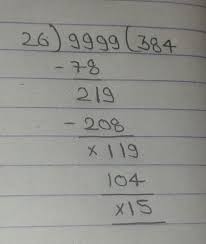 26) 9999 (384
- 78
219
- 208
× 119
104
× 15